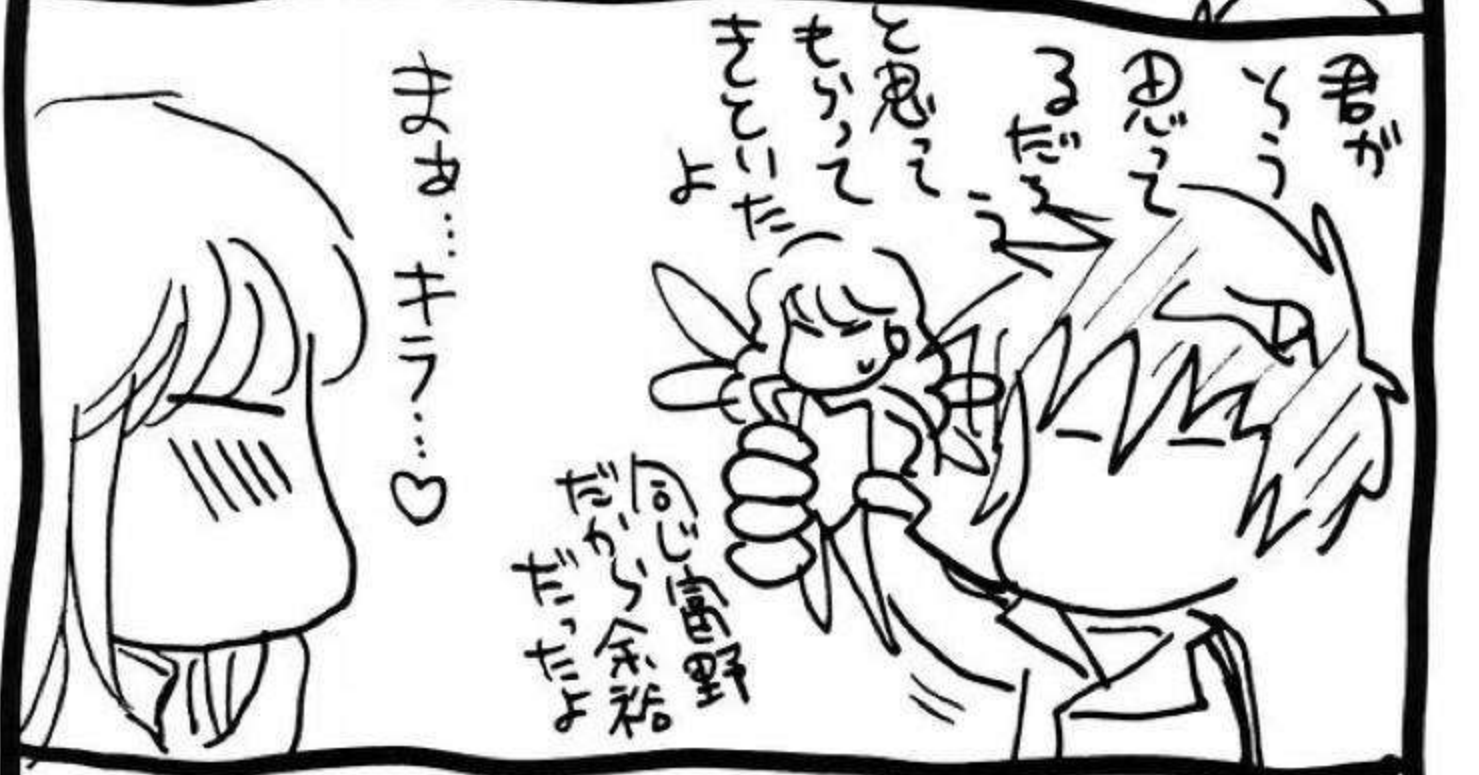 君が
そう
思って
るだろ
う
と思って
もらって
きといた
よ
同じ富野
だから余裕
だったよ
まぁ…キラ…♡